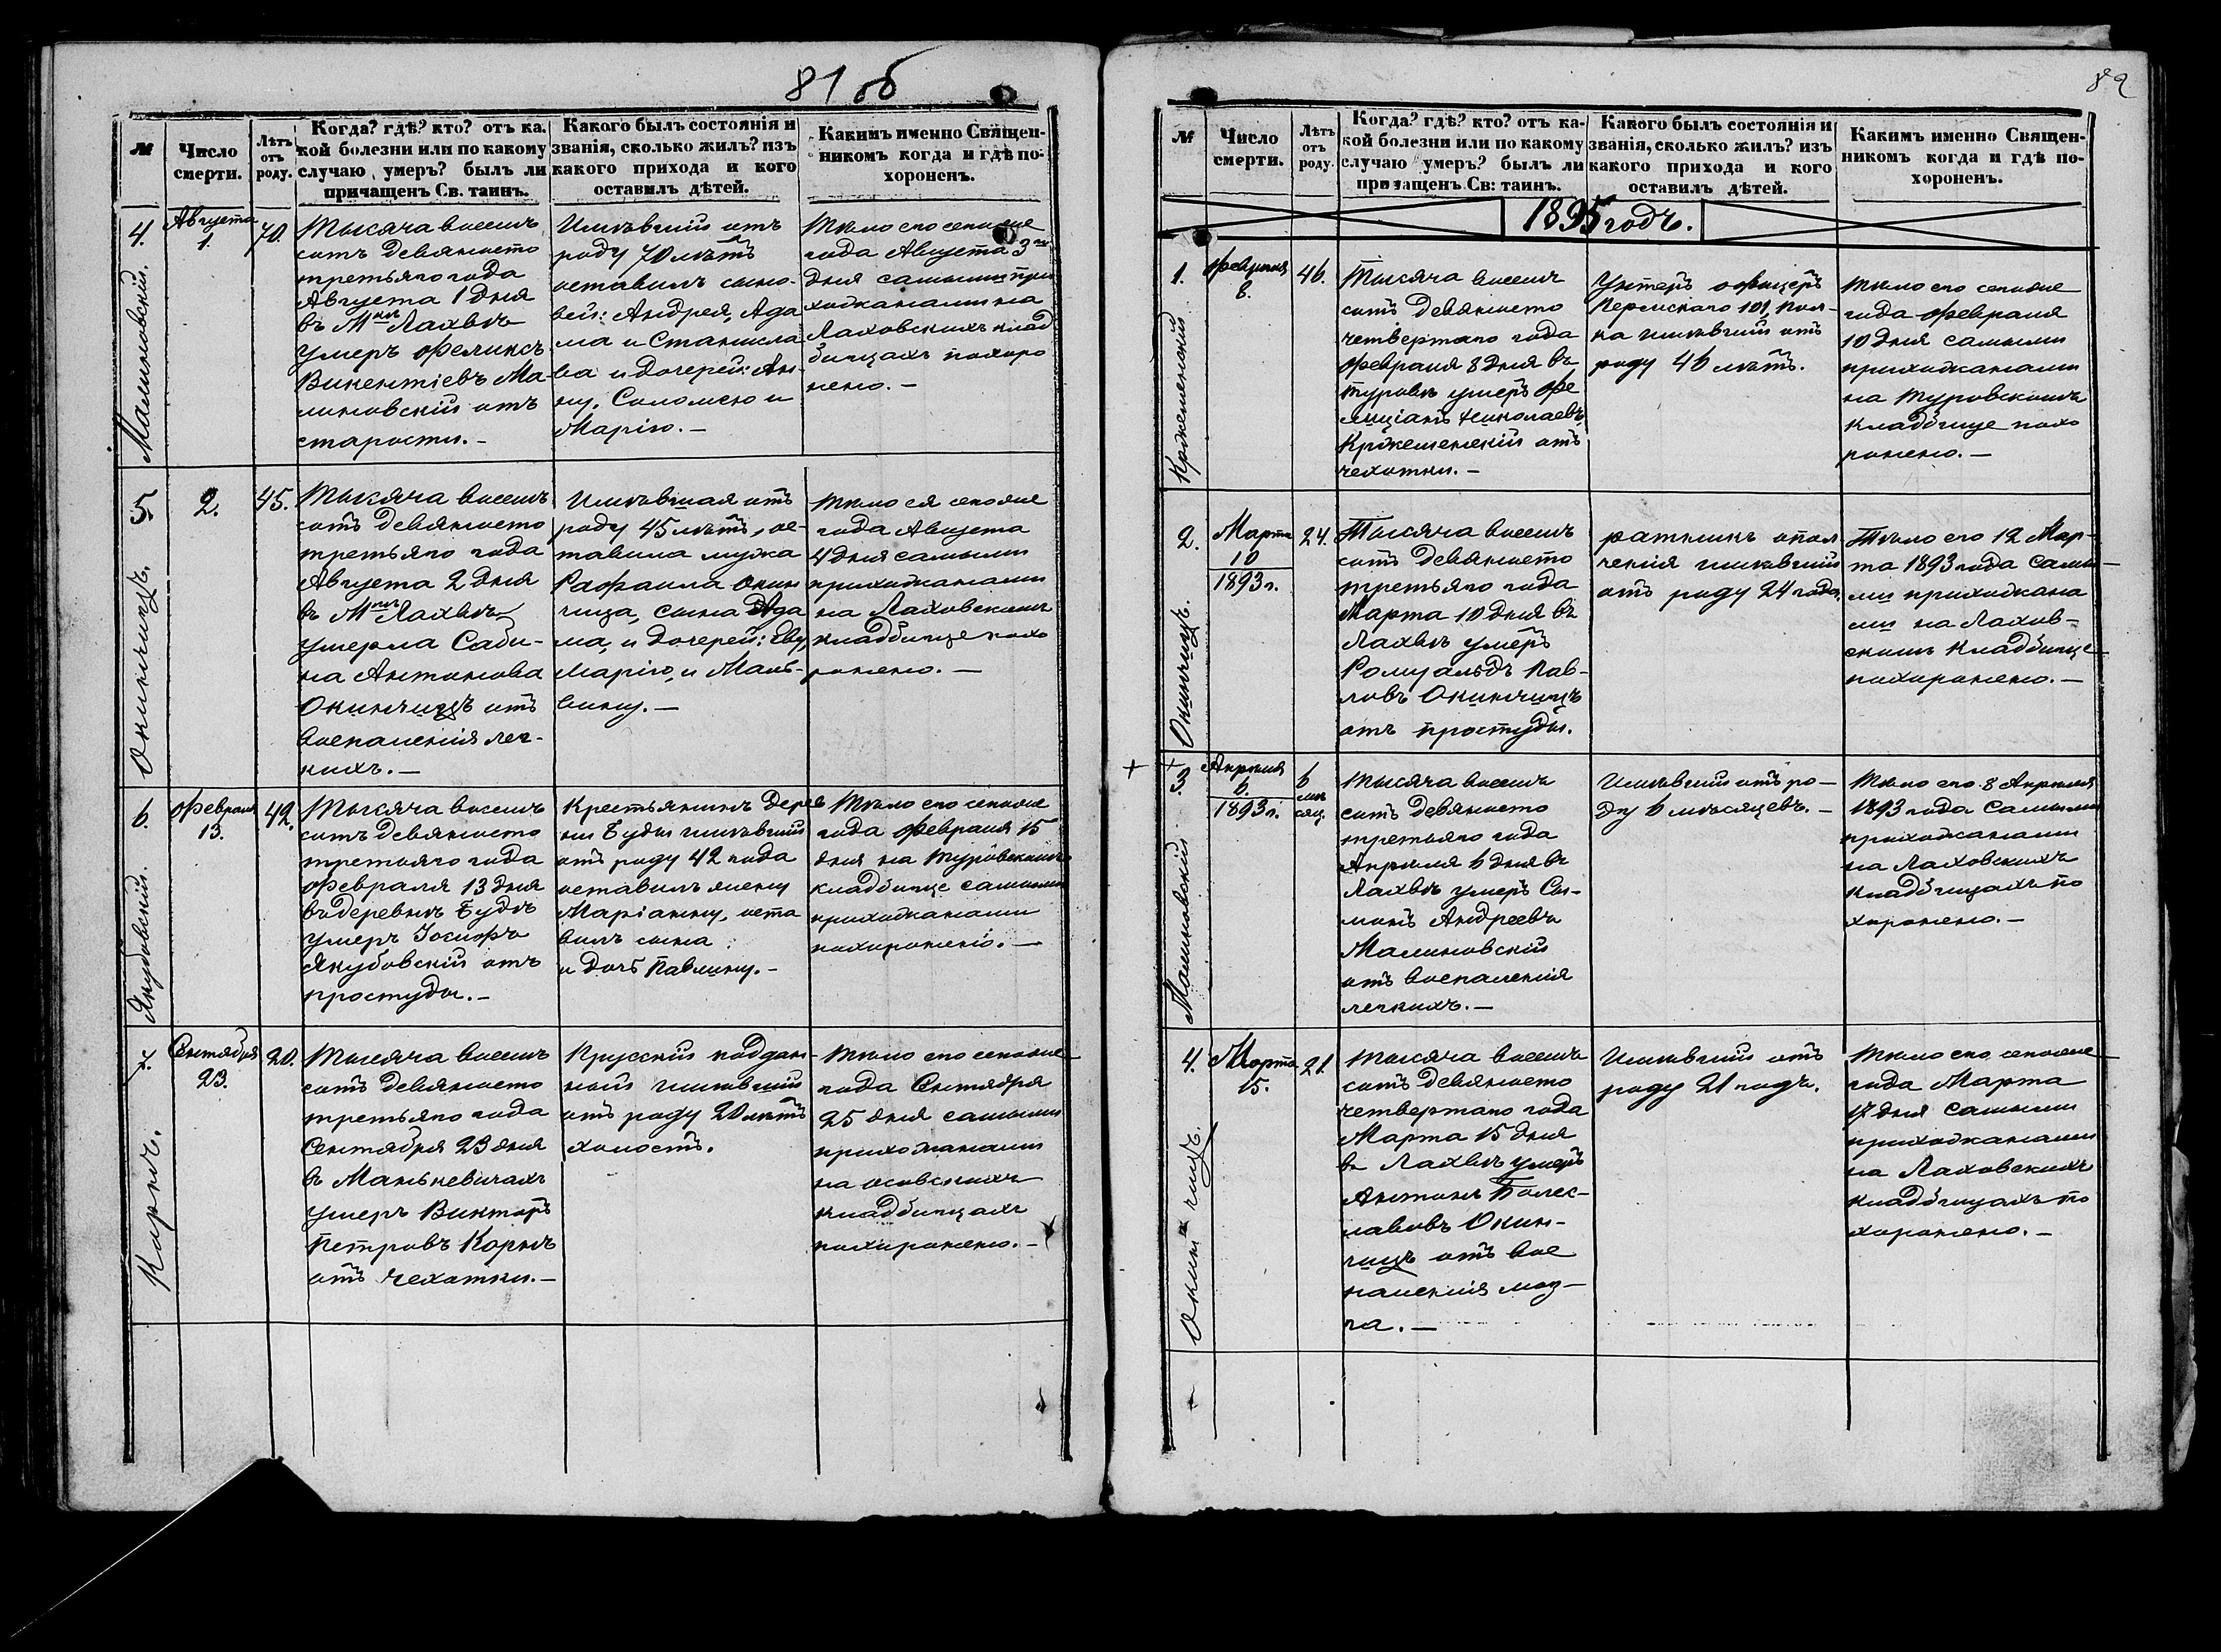 81 об
№
Число
смерти.
Лѣтъ
отъ
роду.
Когда? гдѣ? кто? отъ ка-
кой болезни или по какому
случаю умеръ? былъ ли
причащенъ Св. таинъ.
Какого былъ состоянія и
званія, сколько жилъ? изъ
какого прихода и кого
оставилъ дѣтей.
Какимъ именно Священ-
никомъ когда и гдѣ по-
хороненъ.
4.
Малиновскій.
Августа
1.
70.
Тысяча восемь
сотъ девяносто
третьяго года
Августа 1 дня
въ Мкѣ Лахвѣ
умеръ Феликсъ
Викентіевъ Ма-
линовскій отъ
старости. –
Имѣвшій отъ
роду 70 лѣтъ
оставилъ сыно-
вей: Андрея, Ада
ма и Станисла
ва и дочерей: Ан-
ну, Саломею и
Марію. –
Тѣло его сего же
года Августа 3го
дня самыми при
хожанами на
Лаховскихъ клад
бищахъ похоро
нено. –
5
Окинчицъ.
2.
45.
Тысяча восемь
сотъ девяносто
третьяго года
Августа 2 дня
въ Мкѣ Лахвѣ
умерла Саби-
на Антонова
Окинчицъ отъ
воспаленія лег-
кихъ. –
Имѣвшая отъ
роду 45 лѣтъ, ос-
тавила мужа
Рафаила Окин
чица, сына Ада
ма, и дочерей: Еву,
Марію, и Маль-
вину. –
Тѣло ея сего же
года Августа
4 дня самыми
прихожанами
на Лаховскомъ
кладбище похо
ронено. –
6.
Якубовскій.
Февраля
13.
42.
Тысяча восемь
сотъ девяносто
третьяго года
Февраля 13 дня
въ деревнѣ Будѣ
умеръ Іосифъ
Якубовскій отъ
простуды. –
Крестьянинъ дерев
ни Буды имѣвшій
отъ роду 42 года
оставилъ жену
Маріанну, оста
вилъ сына
и дочь Павлину. –
Тѣло его сего же
года Февраля 15
дня на Туровскомъ
кладбище самыми
прихожанами
похоронено. –
7.
Корнъ.
Сентября
23.
20.
Тысяча восемь
сотъ девяносто
третьяго года
Сентября 23 дня
въ Манькевичахъ
умеръ Викторъ
Петровъ Корнъ
отъ чехотки. –
Прусскій поддан-
ный имѣвшій
отъ роду 20 лѣтъ
холостъ.
Тѣло его сего же
года Сентября
25 дня самыми
прихожанами
на осовскихъ
кладбищахъ
похоронено. –
82
№
Число
смерти.
Лѣтъ
отъ
роду.
Когда? гдѣ? кто? отъ ка-
кой болезни или по какому
случаю умеръ? былъ ли
причащенъ Св: таинъ.
Какого былъ состоянія и
званія, сколько жилъ? изъ
какого прихода и кого
оставилъ дѣтей.
Какимъ именно Священ-
никомъ когда и гдѣ по-
хороненъ.
1895 годъ.
1.
Февраля
8.
46.
Тысяча восемь
сотъ девяносто
четвертаго года
Февраля 8 дня въ
Туровѣ умеръ Фе
лиціанъ Николаевъ
Кржеменскій отъ
чехотки. –
Унтеръ офицеръ
Пермскаго 101, пол-
ка имѣвшій отъ
роду 46 лѣтъ.
Тѣло его сего же
года Февраля
10 дня самыми
прихожанами
на Туровскомъ
кладбище похо
ронено. –
2.
Окинчицъ.
Марта
10
1893 г.
24.
Тысяча восемь
сотъ девяносто
третьяго года
Марта 10 дня въ
Лахвѣ умеръ
Ромуальдъ Пав-
ловъ Окинчицъ
отъ простуды.
ратникъ опол
ченія имѣвшій
отъ роду 24 года.
Тѣло его 12 Мар-
та 1893 года самы-
ми прихожана
ми на Лахов-
скомъ кладбище
похоронено. –
3
Малиновскій
Апрѣля
6.
1893 г.
6
мѣ
сяц.
Тысяча восемь
сотъ девяносто
третьяго года
Апрѣля 6 дня въ
Лахвѣ умеръ Си-
монъ Андреевъ
Малиновскій
отъ воспаленія
легкихъ. –
Имѣвшій отъ ро-
ду 6 мѣсяцевъ. –
Тѣло его 8 Апрѣля
1893 года самыми
прихожанами
на Лаховскихъ
кладбищахъ по
хоронено. –
4.
Окинчицъ.
Марта
15.
21.
Тысяча восемь
сотъ девяносто
четвертаго года
Марта 15 дня
въ Лахвѣ умеръ
Антонъ Болес-
лавовъ Окин-
чицъ отъ вос
паленія моз-
га. –
Имѣвшій отъ
роду 21 годъ.
Тѣло его сего же
года Марта
17 дня самыми
прихожанами
на Лаховскихъ
кладбищахъ по
хоронено. –